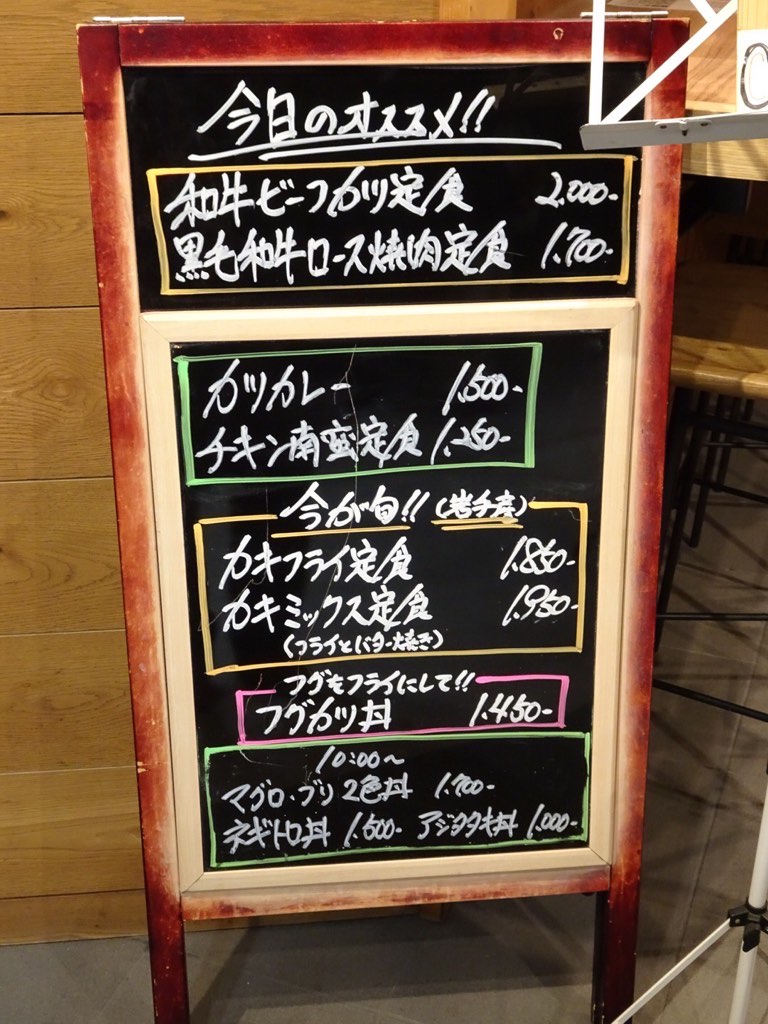 今日のオススメ!!
和牛ビーフカツ定食 2.000-
黒毛和牛ロース焼肉定食 1.700-
カツカレー 1.500-
チキン南蛮定食 1.250-
今が旬!! (岩手産)
カキフライ定食 1.850-
カキミックス定食 1.950-
(フライとバター焼き)
フグをフライにして!!
フグカツ丼 1.450-
10:00～
マグロ・ブリ2色丼 1.700-
ネギトロ丼 1.500- アジタタキ丼 1.000-